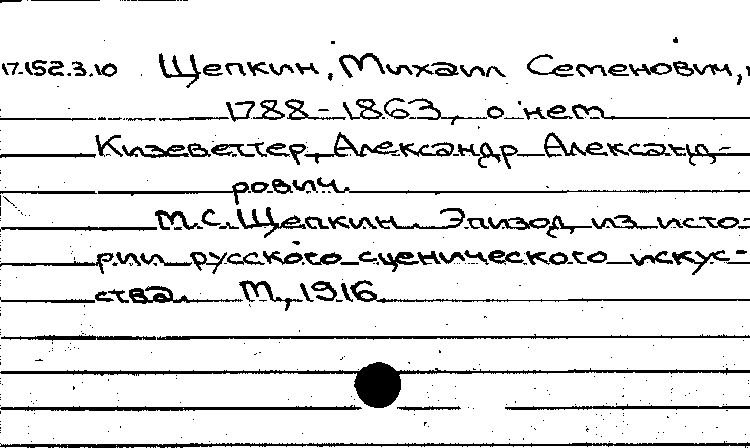 17.152.3.10 Щепкин, Михаил Семенович,
1788-1863, о нем
Кизеветтер, Александр Александ-
рович.
М.С. Щепкин. Эпизод из исто-
рии русского сценического искус-
ства. М., 1916.